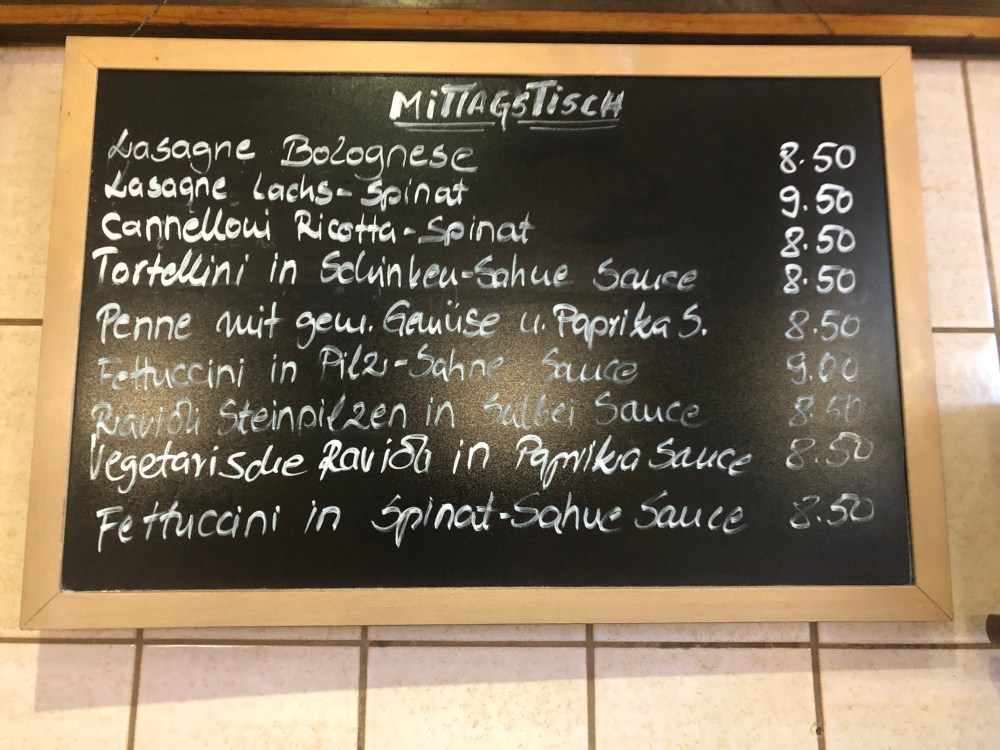 MITTAGSTISCH
Lasagne Bolognese 8.50
Lasagne Lachs-Spinat 9.50
Cannelloni Ricotta-Spinat 8.50
Tortellini in Schinken-Sahne Sauce 8.50
Penne mit gem. Gemüse u. Paprika S. 8.50
Fettuccini in Pilz-Sahne Sauce 9.00
Ravioli Steinpilzen in Salbei Sauce
Vegetarische Ravioli in Paprika Sauce 8.50
Fettuccini in Spinat-Sahne Sauce 8.50